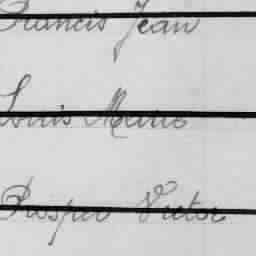 Francis Jean
Louis Marie
Prosper Victor